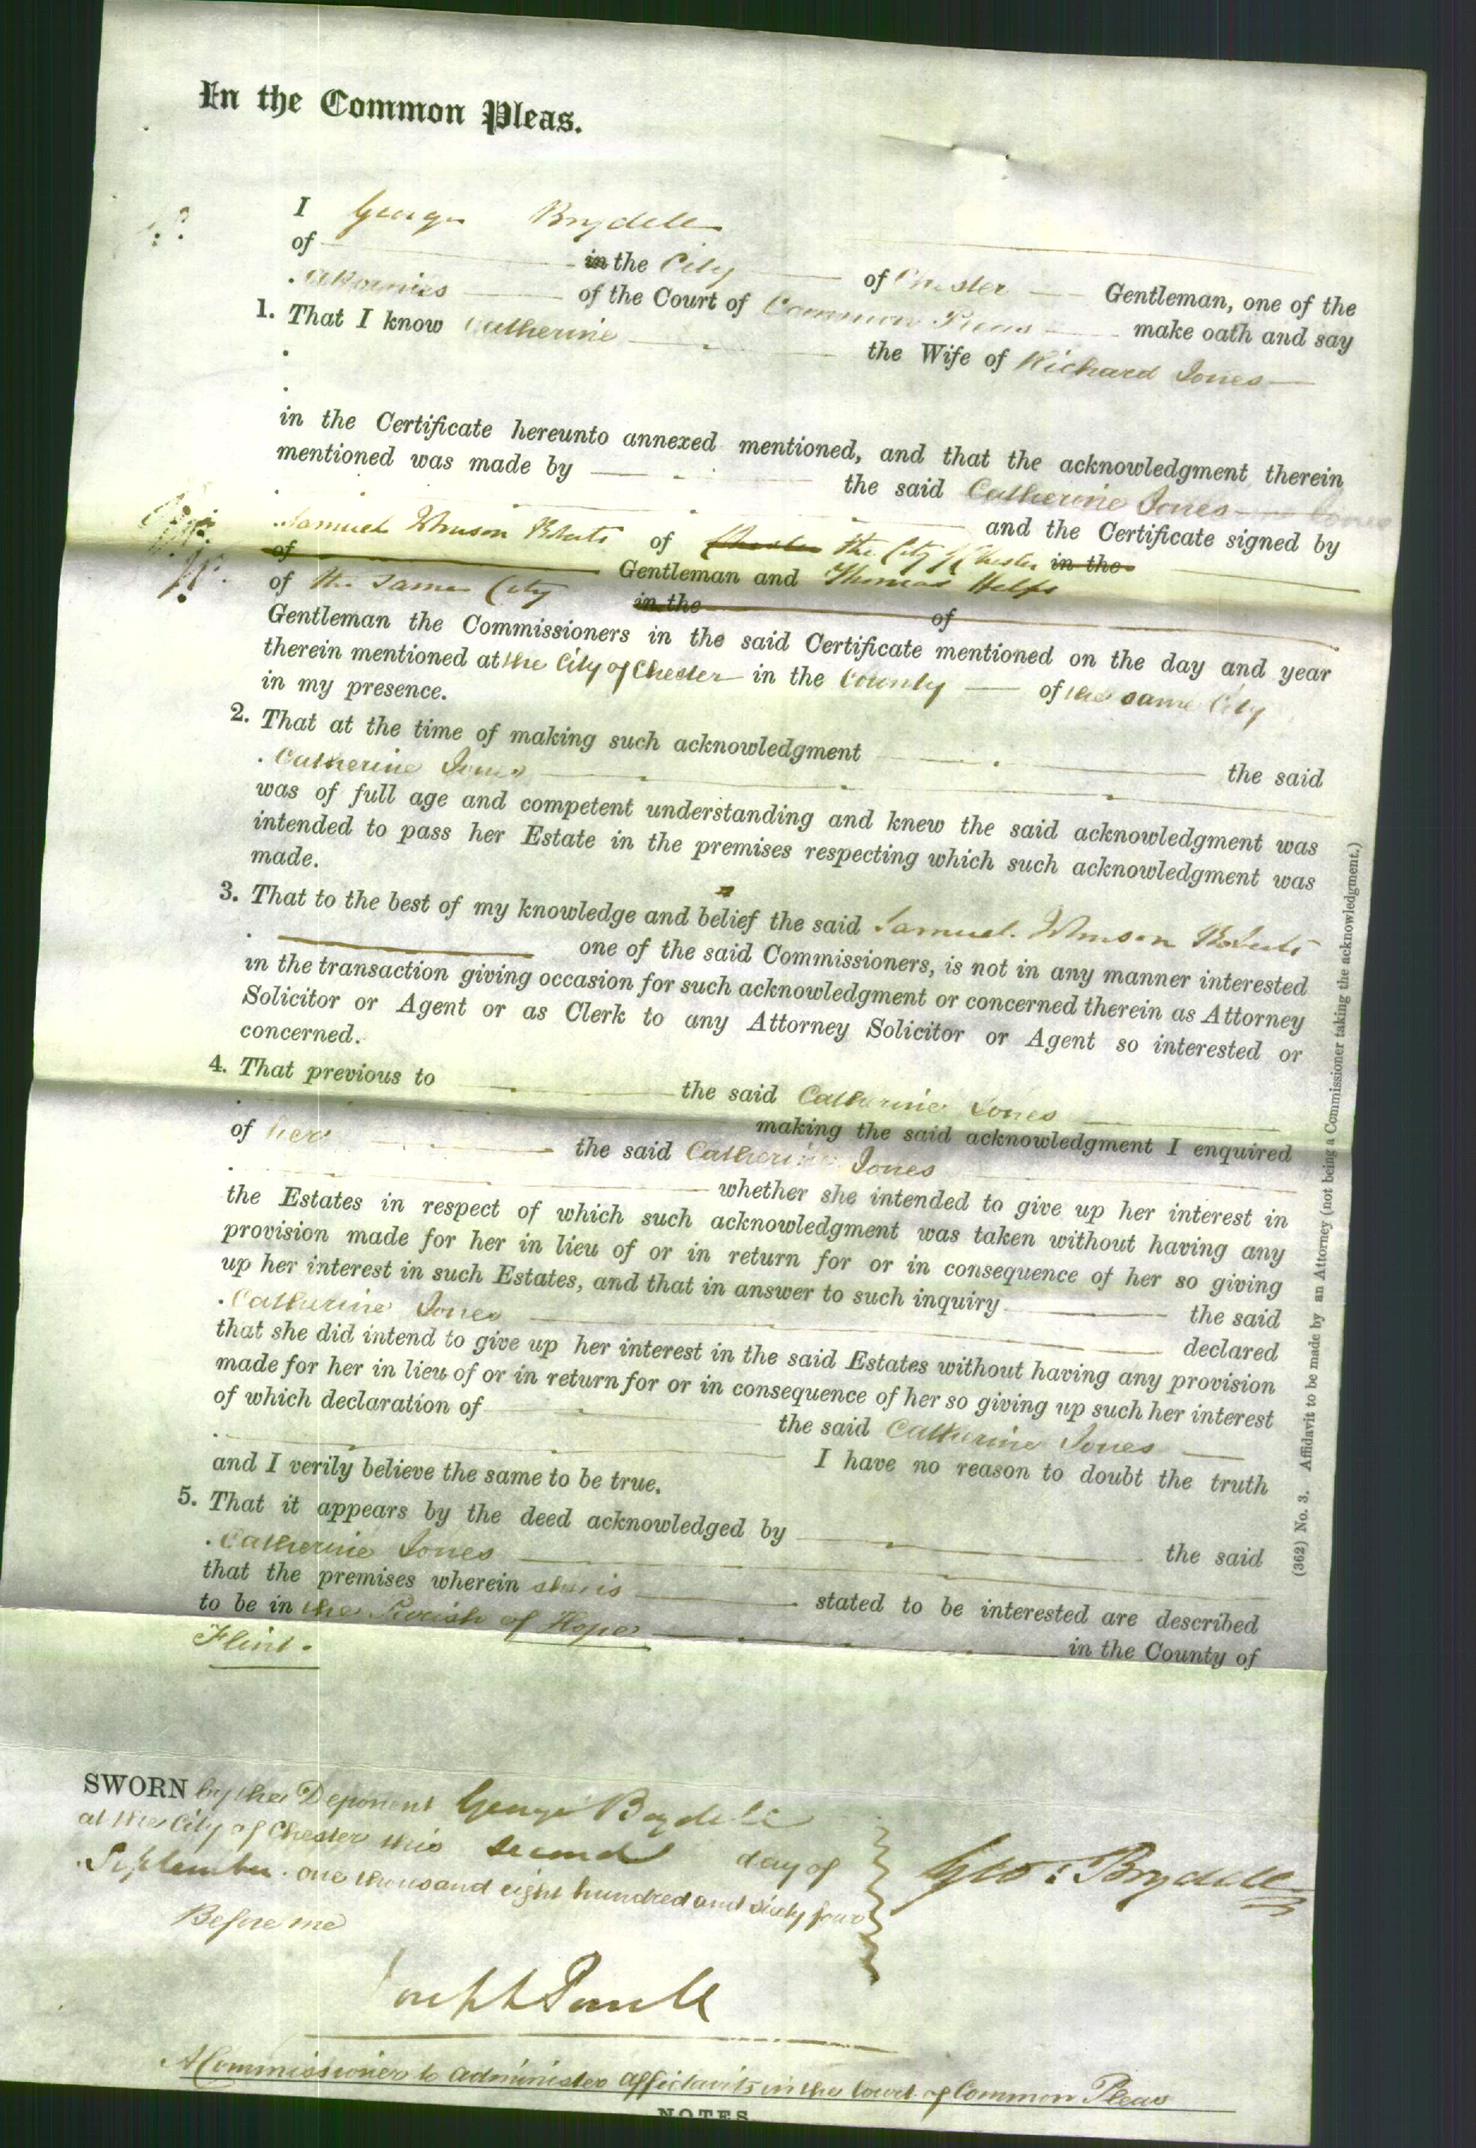 In the Common Pleas.
I George Boydell
of in the City of Chester Gentleman, one of the
Attornies of the Court of Common Pleas make oath and say
1. That I know Catherine the Wife of Richard Jones
in the Certificate hereunto annexed mentioned, and that the acknowledgment therein
mentioned was made by the said Catherine Jones
and the Certificate signed by
Samuel of Chester the City of Chester in the
of Gentleman and Thomas Helps
of the same City in the of
Gentleman the Commissioners in the said Certificate mentioned on the day and year
therein mentioned at the City of Chester in the County of the same City
in my presence.
2. That at the time of making such acknowledgment the said
Catherine Jones
was of full age and competent understanding and knew the said acknowledgment was
intended to pass her Estate in the premises respecting which such acknowledgment was
made.
3. That to the best of my knowledge and belief the said Samuel Roberts
one of the said Commissioners, is not in any manner interested
in the transaction giving occasion for such acknowledgment or concerned therein as Attorney
Solicitor or Agent or as Clerk to any Attorney Solicitor or Agent so interested or
concerned.
4. That previous to the said Catherine Jones
making the said acknowledgment I enquired
of her the said Catherine Jones
whether she intended to give up her interest in
the Estates in respect of which such acknowledgment was taken without having any
provision made for her in lieu of or in return for or in consequence of her so giving
up her interest in such Estates, and that in answer to such inquiry the said
Catherine Jones declared
that she did intend to give up her interest in the said Estates without having any provision
made for her in lieu of or in return for or in consequence of her so giving up such her interest
of which declaration of the said Catherine Jones
I have no reason to doubt the truth
and I verily believe the same to be true.
5. That it appears by the deed acknowledged by the said
Catherine Jones
that the premises wherein she is stated to be interested are described
to be in the Parish of Hope in the County of
Flint.
SWORN by the Deponent George Boydell
at the City of Chester this second day of
September one thousand eight hundred and sixty four
Before me
Geo: Boydell
Joseph Powell
A Commissioner to administer affidavits in the Court of Common Pleas
NOTES
(362) No. 3. Affidavit to be made by an Attorney (not being a Commissioner taking the acknowledgment.)